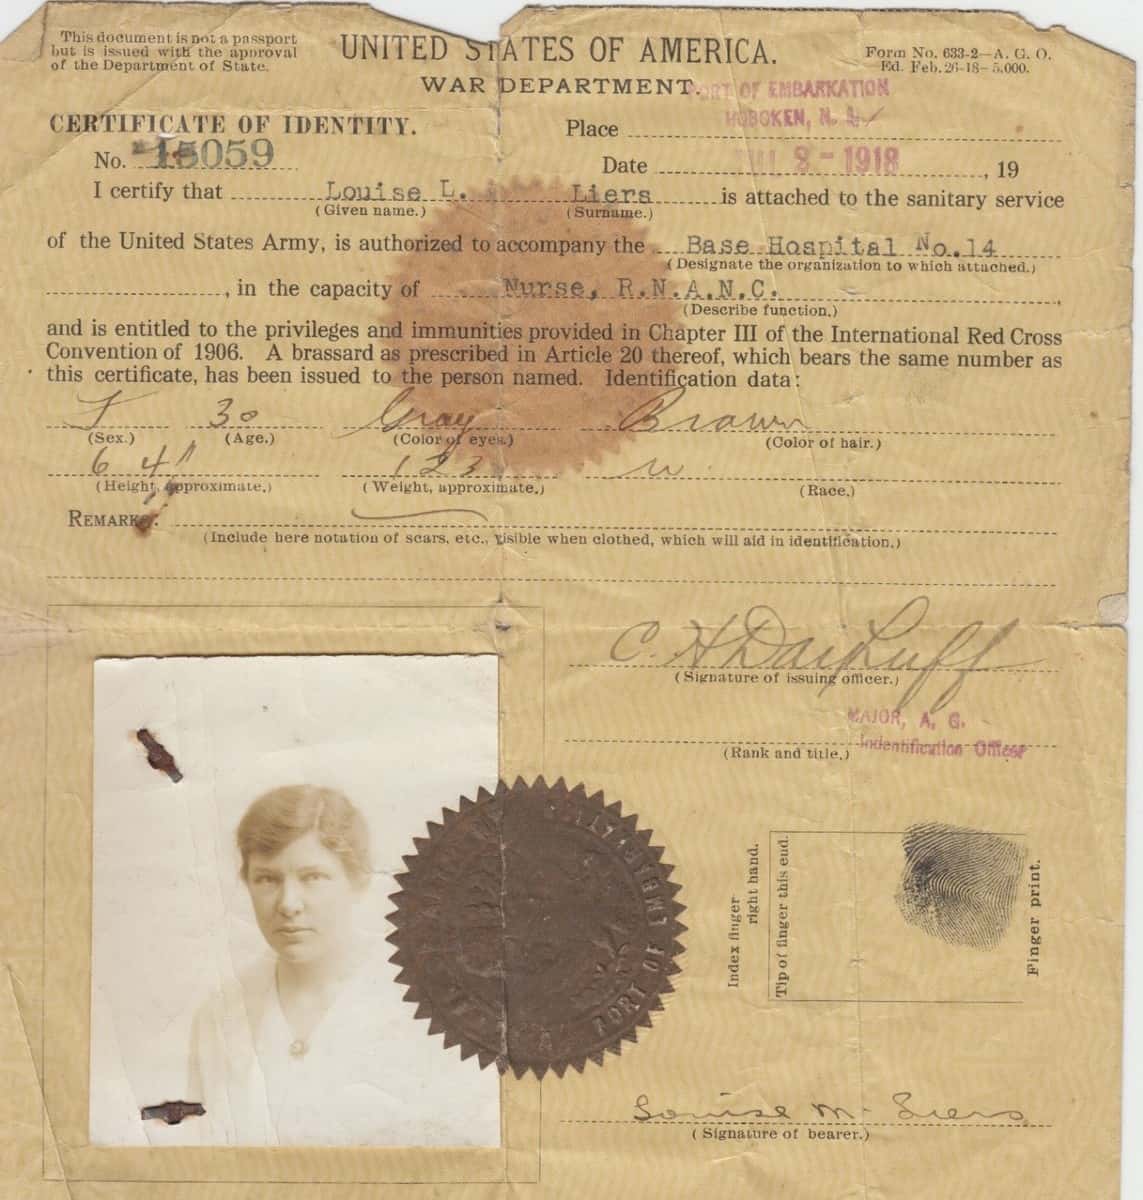 This document is not a passport
but is issued with the approval
of the Department of State.
UNITED STATES OF AMERICA.
WAR DEPARTMENT.
Form No. 633-2—A. G. O.
Ed. Feb. 26-18—5,000.
PORT OF EMBARKATION
HOBOKEN, N. J.
CERTIFICATE OF IDENTITY.
Place
No. 15059
Date JUL 8-1918, 19
I certify that Louise L. Liers is attached to the sanitary service
(Given name.) (Surname.)
of the United States Army, is authorized to accompany the Base Hospital No.14
(Designate the organization to which attached.)
, in the capacity of Nurse, R.N.A.N.C.,
(Describe function.)
and is entitled to the privileges and immunities provided in Chapter III of the International Red Cross
Convention of 1906. A brassard as prescribed in Article 20 thereof, which bears the same number as
this certificate, has been issued to the person named. Identification data:
F 30 Gray Brown
(Sex.) (Age.) (Color of eyes.) (Color of hair.)
6 4" 123 W.
(Height, approximate.) (Weight, approximate.) (Race.)
REMARKS:
(Include here notation of scars, etc., visible when clothed, which will aid in identification.)
C. H.
(Signature of issuing officer.)
MAJOR, A. G.
Indentification Officer
(Rank and title.)
PORT OF
Index finger
right hand.
Tip of finger this end.
Finger print.
Louise M. Liers
(Signature of bearer.)